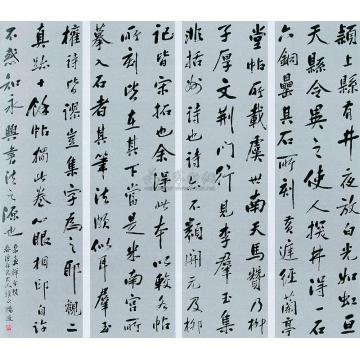 頴上縣有井夜放白光如虹亘
天縣令異之使人探井得一石
六銅罍其石所刻黄庭經蘭亭
堂帖所載虞世南天馬贊乃柳
子厚文荆門行見李羣玉集
非括州詩也詩不類開元及柳
記皆宋拓也余得此本以較各帖
所刻皆在其下當是米南宫
摹入石者其筆法頗似耳羣玉
擁詩皆謬豈集字為之耶觀二
真跡十餘帖獨此卷心眼相印自
不愁知永興書法之源也